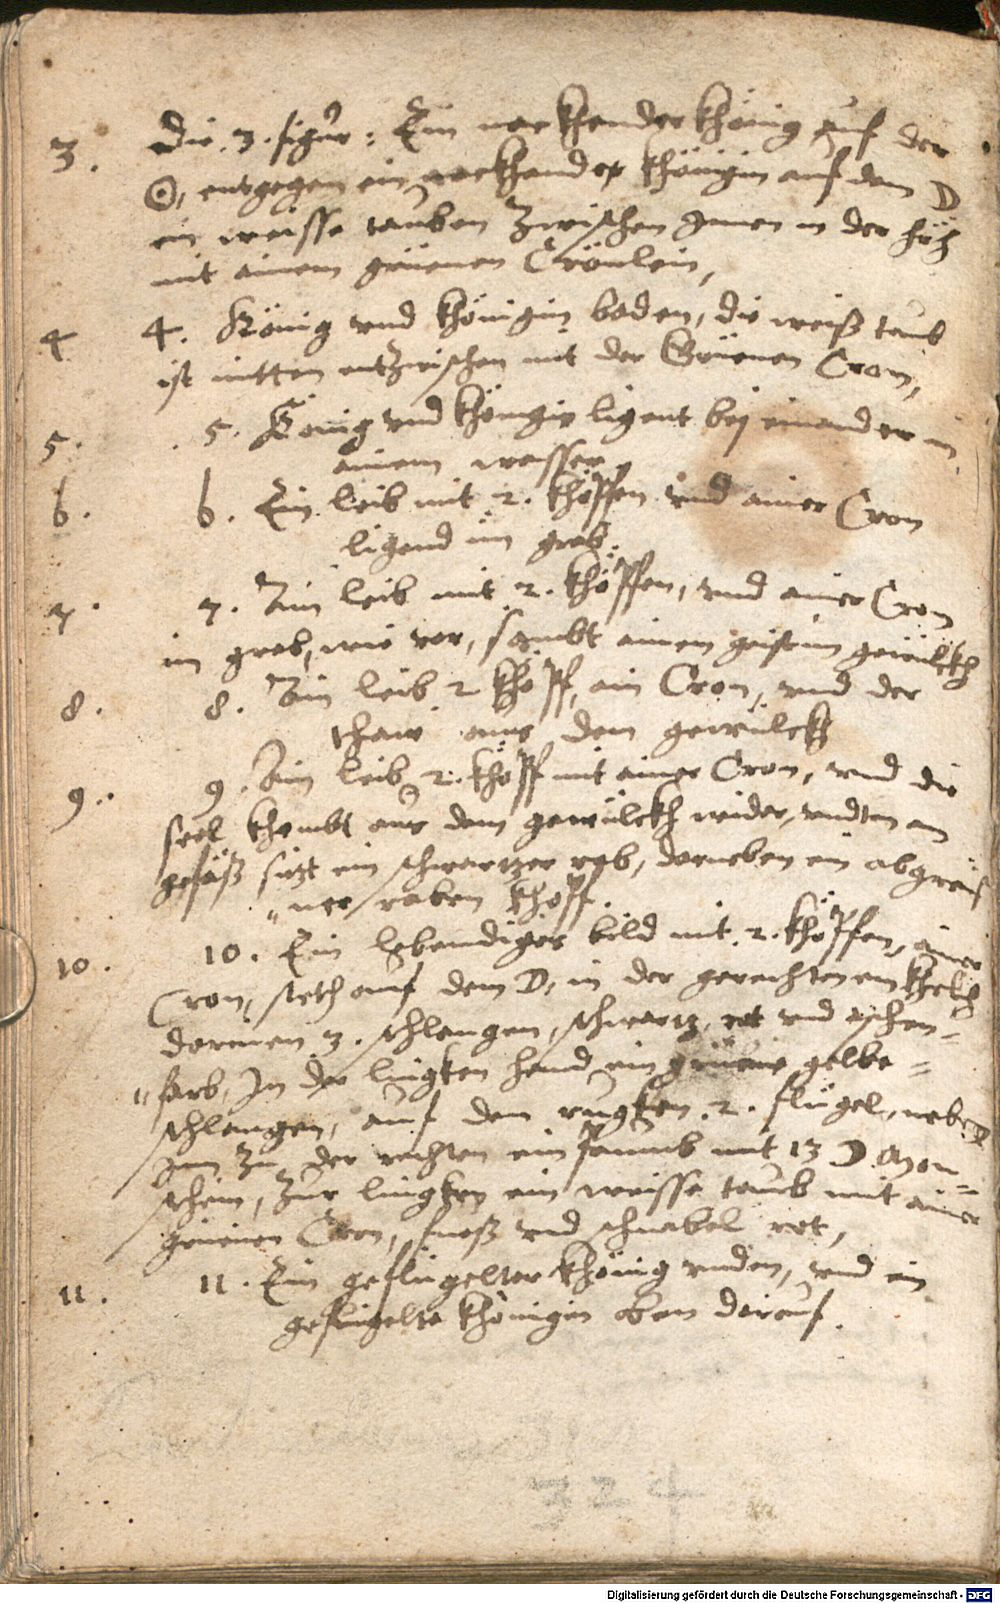 3. Die .3. figur: Ein nackhender khönig auf der
☉, entgegen ein nackhende khönigin auf dem ☽
ein weisse tauben zwischen Jnnen in der höh
mit ainem grüenen Crönlein,
4 4. König vnd khönigin baden, die weiß taub
ist mitten entzwischen mit der Grüenen Cron,
5. 5. König vnd khönigin ligent bej einander in
ainem wasser
6. 6. Ein leib mit 2. khöpffen vnd ainer Cron
ligend im grab.
7. 7. Ain leib mit 2. khöpffen, vnd ainer Cron
im grab, wie vor, sambt ainem geist im gewülckh
8. 8. Ain leib 2 khöpff, ain Cron, vnd der
thaw aus dem gewülckh
9. 9. Ain leib 2. khöpff mit ainer Cron, vnd die
seel khombt aus dem gewülckh wider, vndten am
gesäß sizt ein schwartzer rab, darneben ein
raben khopff.
10. 10. Ein lebendiges bild mit .2. khöpffen, ainer
Cron, steth auf dem ☽, in der gerechten ein khelch
darinnen 3. schlangen, schwartz, rot vnd aschen=
farb, Jn der lingken hand ein gelbe=
schlangen, auf dem rugken .2. flügel, neben
Jm zu der rechten ein paumb mit 13 ☽. Mon=
schein, zur lingken ein weisse taub mit ainer
grüenen Cron, fueß vnd schnabel rot,
11. 11. Ein geflügelter khönig vnden, vnd ein
geflügelte khönigin oben darauf.
324
Digitalisierung gefördert durch die Deutsche Forschungsgemeinschaft - DFG